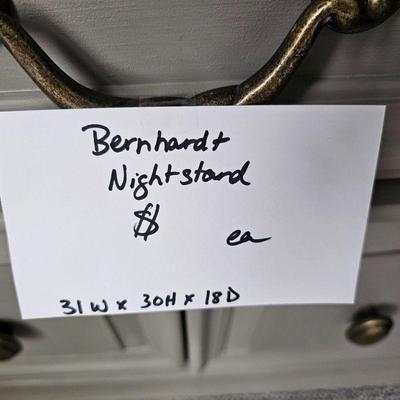 Bernhardt
Nightstand
$ ea
31W x 30H x 18D